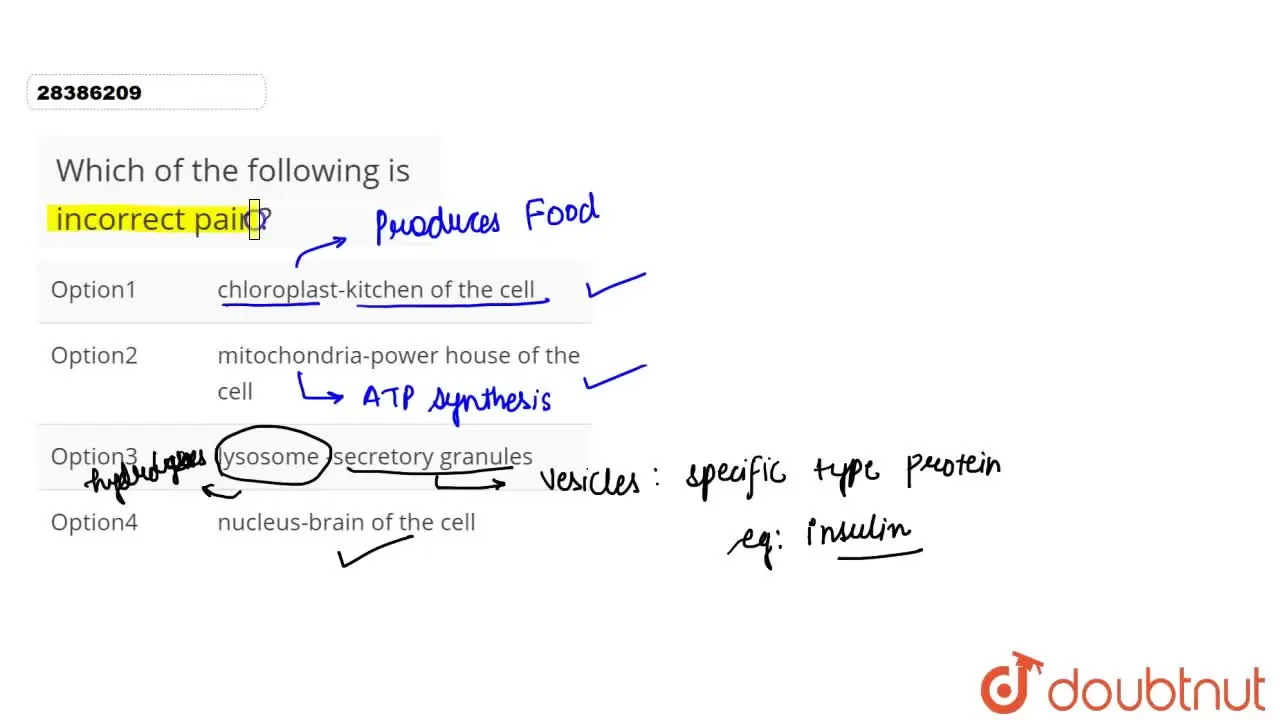 28386209
Which of the following is
incorrect pair?
Produces Food
Option1 chloroplast-kitchen of the cell
Option2 mitochondria-power house of the
cell
ATP synthesis
Option3 lysosome -secretory granules
vesicles: specific type protein
Option4 nucleus-brain of the cell
eg: insulin
doubtnut